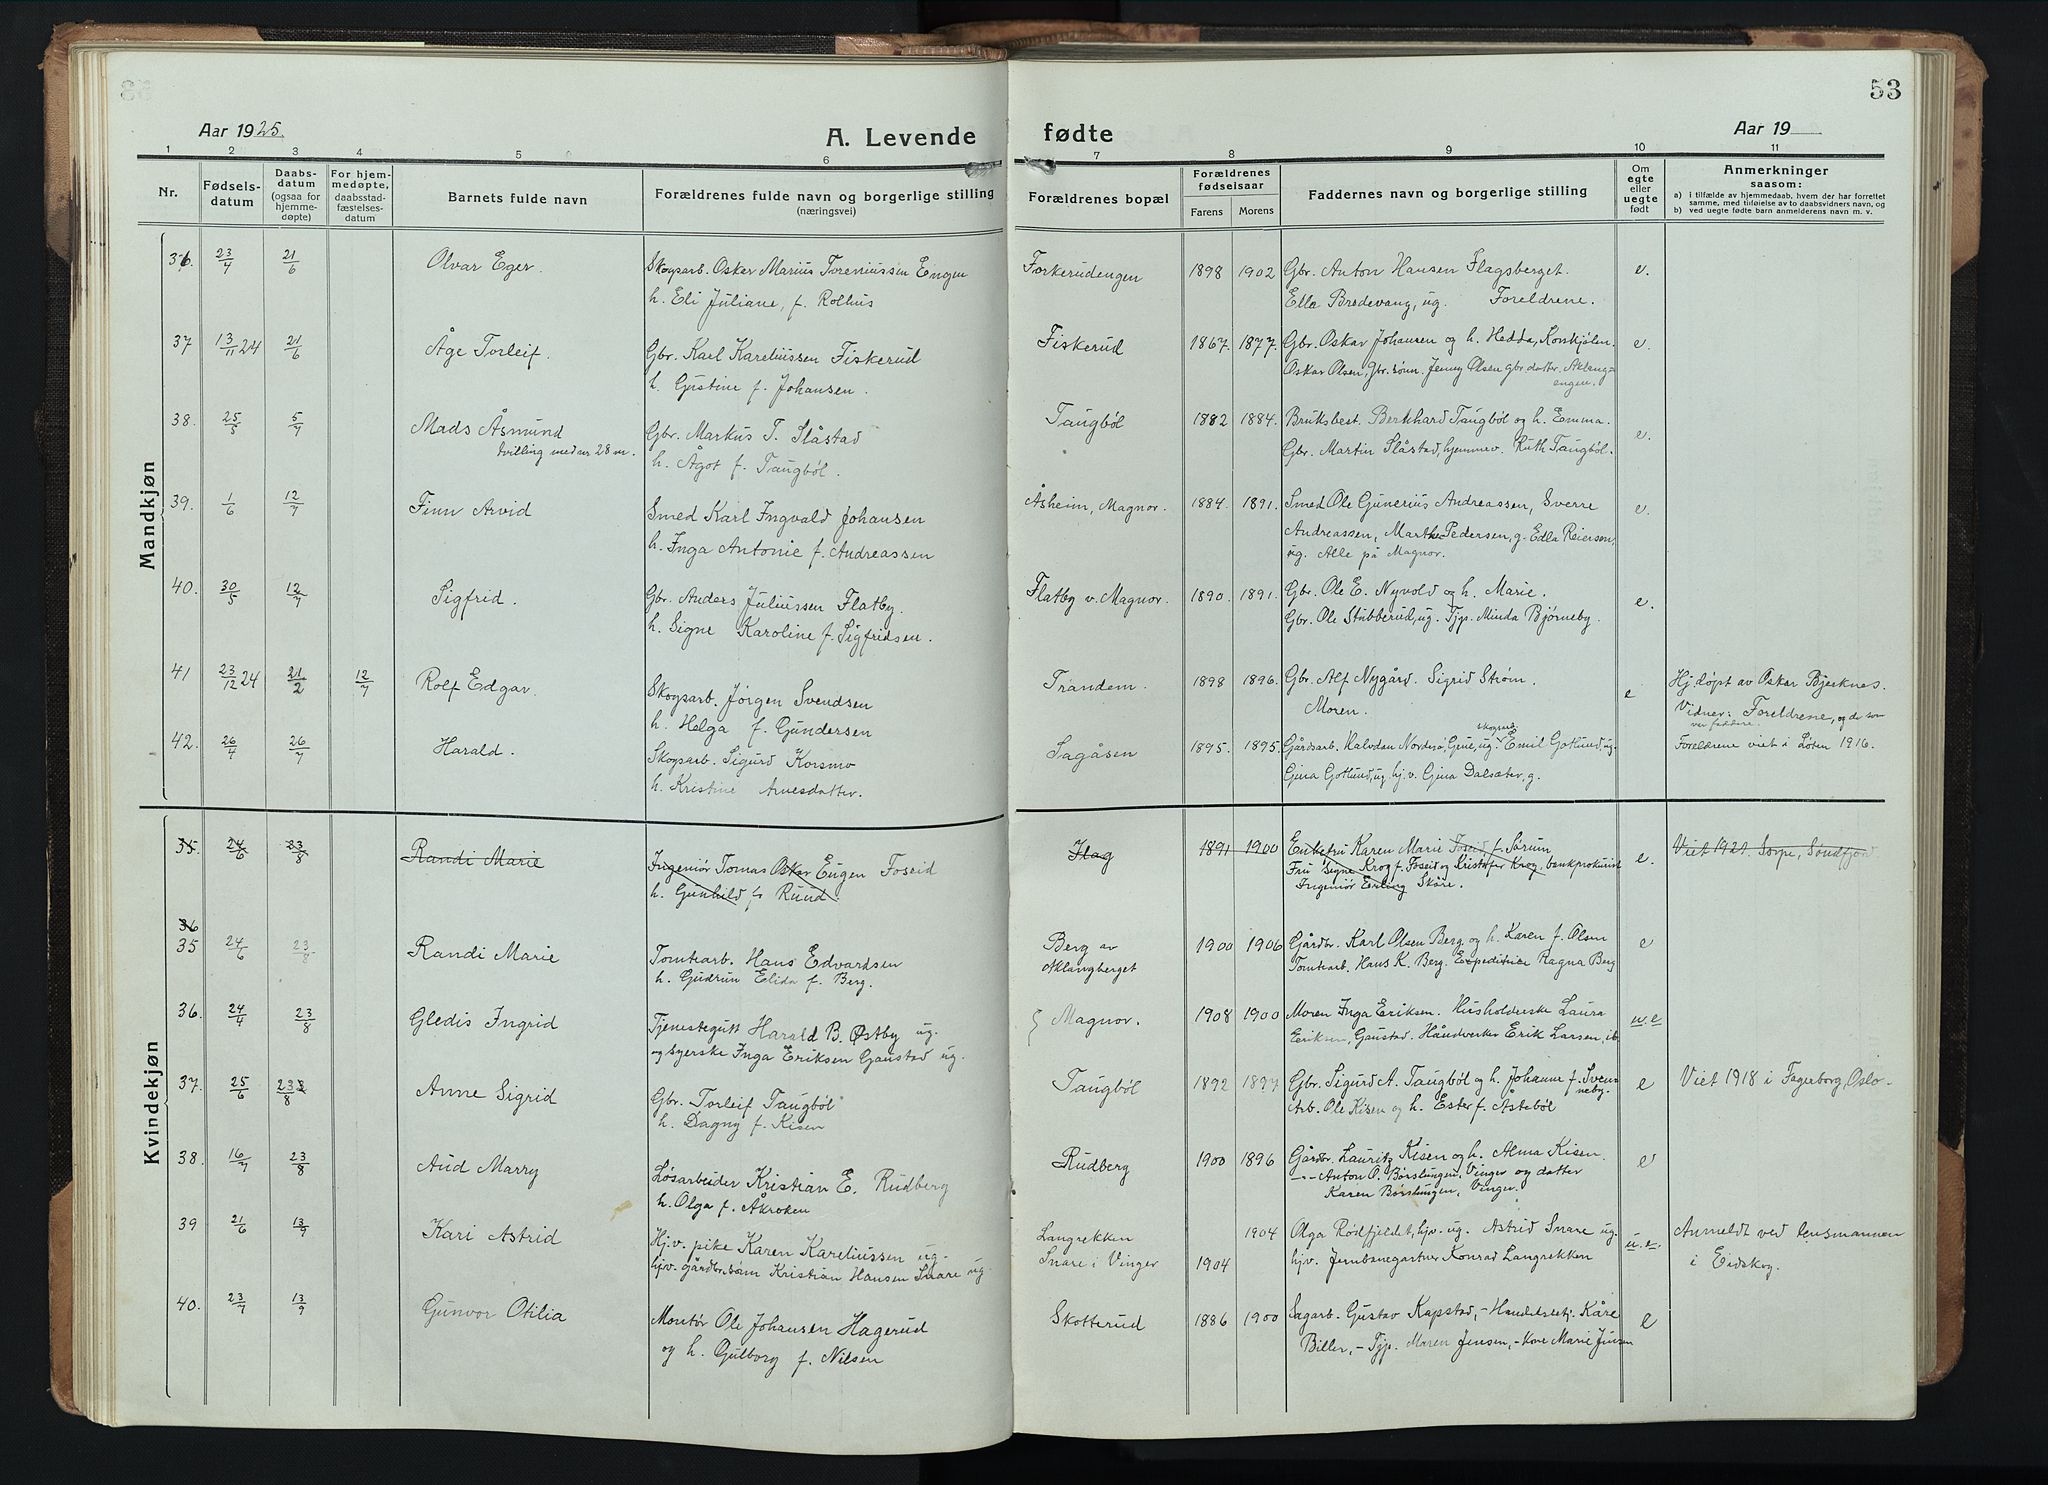 53
Aar 1925.
A. Levende fødte
Aar 19
1 2 3 4 5 6 7 8 9 10 11
Nr.
Fødselsdatum
Daabsdatum (ogsaa for hjemmedøpte)
For hjemmedøpte, daabsstadfæstelsesdatum
Barnets fulde navn
Forældrenes fulde navn og borgerlige stilling (næringsvei)
Forældrenes bopæl
Forældrenes fødselsaar
Farens Morens
Faddernes navn og borgerlige stilling
Om egte eller uegte født
Anmerkninger saasom:
a) i tilfælde av hjemmedaab, hvem der har forrettet samme, med tilføielse av to daabsvidners navn, og
b) ved uegte fødte barn anmelderens navn m. v.
Mandkjøn
36 23/4 21/6 Olvar Eger. Skogsarb. Oskar Marius Toreniussen Engen Forkerudengen 1898 1902 Gbr. Anton Hansen Flagsberget. e.
h. Eli Juliane, f. Rolhus Ella Bredevang, ug. Foreldrene.
37 13/11 24 21/6 Åge Torleif. Gbr. Karl Kareliussen Fiskerud Fiskerud 1867. 1877. Gbr. Oskar Johansen og h. Hedda, Korskjølen. e.
h. Gustine f. Johansen. Oskar Olsen, Gbr. sønn. Jenny Olsen gbr. datter. Aklangengen.
38. 25/5 5/7 Mads Åsmund Gbr. Markus T. Slåstad Taugbøl 1882 1884. Bruksbest. Bernhard Taugbøl og h. Emma. e.
tvilling med nr 28 m. h. Ågot f. Taugbøl. Gbr. Martin Slåstad, hjemmev. Ruth Taugbøl.
39. 1/6 12/7 Finn Arvid Smed Karl Ingvald Johansen Åsheim, Magnor. 1884. 1891. Smed Ole Gunerius Andreassen, Sverre e.
h. Inga Antonie f. Andreassen Andreassen, Marthe Pedersen, g. Edla Reierson,
ug. Alle på Magnor.
40. 30/5 12/7 Sigfrid. Gbr. Anders Juliussen Flatby. Flatby v. Magnor. 1890. 1891. Gbr. Ole E. Nyvold og h. Marie. e.
h. Signe Karoline f. Sigfridsen. Gbr. Ole Stubberud, ug. Tjp. Minda Bjørneby.
41 23/12 24 21/2 12/7 Rolf Edgar. Skogsarb. Jørgen Svendsen Trandem. 1898 1896. Gbr. Alf Nygård. Sigrid Strøm. e Hj.døpt av Oskar Bjerknes.
h. Helga f. Gundersen Moren. Vidner: Foreldrene, og de som var faddere.
42. 26/4 26/7 Harald. Skogsarb. Sigurd Korsmo Sagåsen 1895. 1895. Gårdsarb. Halvdan Nordnø, Grue, ug. skogsarb. Emil Gotlund, ug. Foreldrene viet i Løten 1916.
h. Kristine Arnesdatter. Gina Gotlund, ug. hj.v. Gina Dalsæter, g.
Kvindekjøn
35. 24/6 23/8 Randi Marie Ingeniør Tomas Oskar Eugen Foseid Flag 1891 1900 Enkefru Karen Marie Foseid f. Sørum e. Viet 1921. Sørpe, Søndfjord
h. Gunhild f. Ruud. Fru Signe Krog f. Foseid og Kristofer Krog, bankprokurist
Ingeniør Erling Skåre.
36
35 24/6 23/8 Randi Marie Tomtearb. Hans Edvardsen Berg av 1900 1906 Gårdbr. Karl Olsen Berg og h. Karen f. Olsen e
h. Gudrun Elida f. Berg. Aklangberget Tomtearb. Hans K. Berg. Expeditrice Ragna Berg
36. 24/4 23/8 Gledis Ingrid Tjenestegutt Harald B. Østby ug. Magnor. 1908 1900 Moren Inga Eriksen. Husholderske Laura u.e
og syerske Inga Eriksen Gaustad ug. Eriksen, Gaustad. Håndverker Erik Larsen, ib.
37. 25/6 23/8 Anne Sigrid Gbr. Torleif Taugbøl Taugbøl 1892 1897 Gbr. Sigurd A. Taugbøl og h. Johanne f. Svenneby. e Viet 1918 i Fagerborg, Oslo.
h. Dagny f. Kisen Arb. Ole Kisen og h. Ester f. Åstebøl
38. 16/7 23/8 Aud Marry Løsarbeider Kristian E. Rudberg Rudberg 1900 1896 Gårdbr. Lauritz Kisen og h. Alma Kisen. e
h. Olga f. Åkroken -"- Anton O. Børslungen, Vinger og datter
Karen Børslungen, Vinger.
39 21/6 13/9 Kari Astrid Hj.v. pike Karen Kareliussen ug. Langrekken 1904 Olga Rødfjeldet, hjv. ug. Astrid Snare ug. u.e. Anmeldt ved lensmannen
hjv. gårdbr.sønn Kristian Hansen Snare ug. Snare i Vinger 1904 hjv. Jernbanegartner Konrad Langrekken i Eidskog.
40. 23/7 13/9 Gunvor Otilia Montør Ole Johansen Hagerud Skotterud 1886 1900 Sagarb. Gustav Kapstad, - Handelsbetj. Kåre e
og h. Gulborg f. Nilsen Biller, - Tjp. Maren Jensen, - Kone Marie Jensen